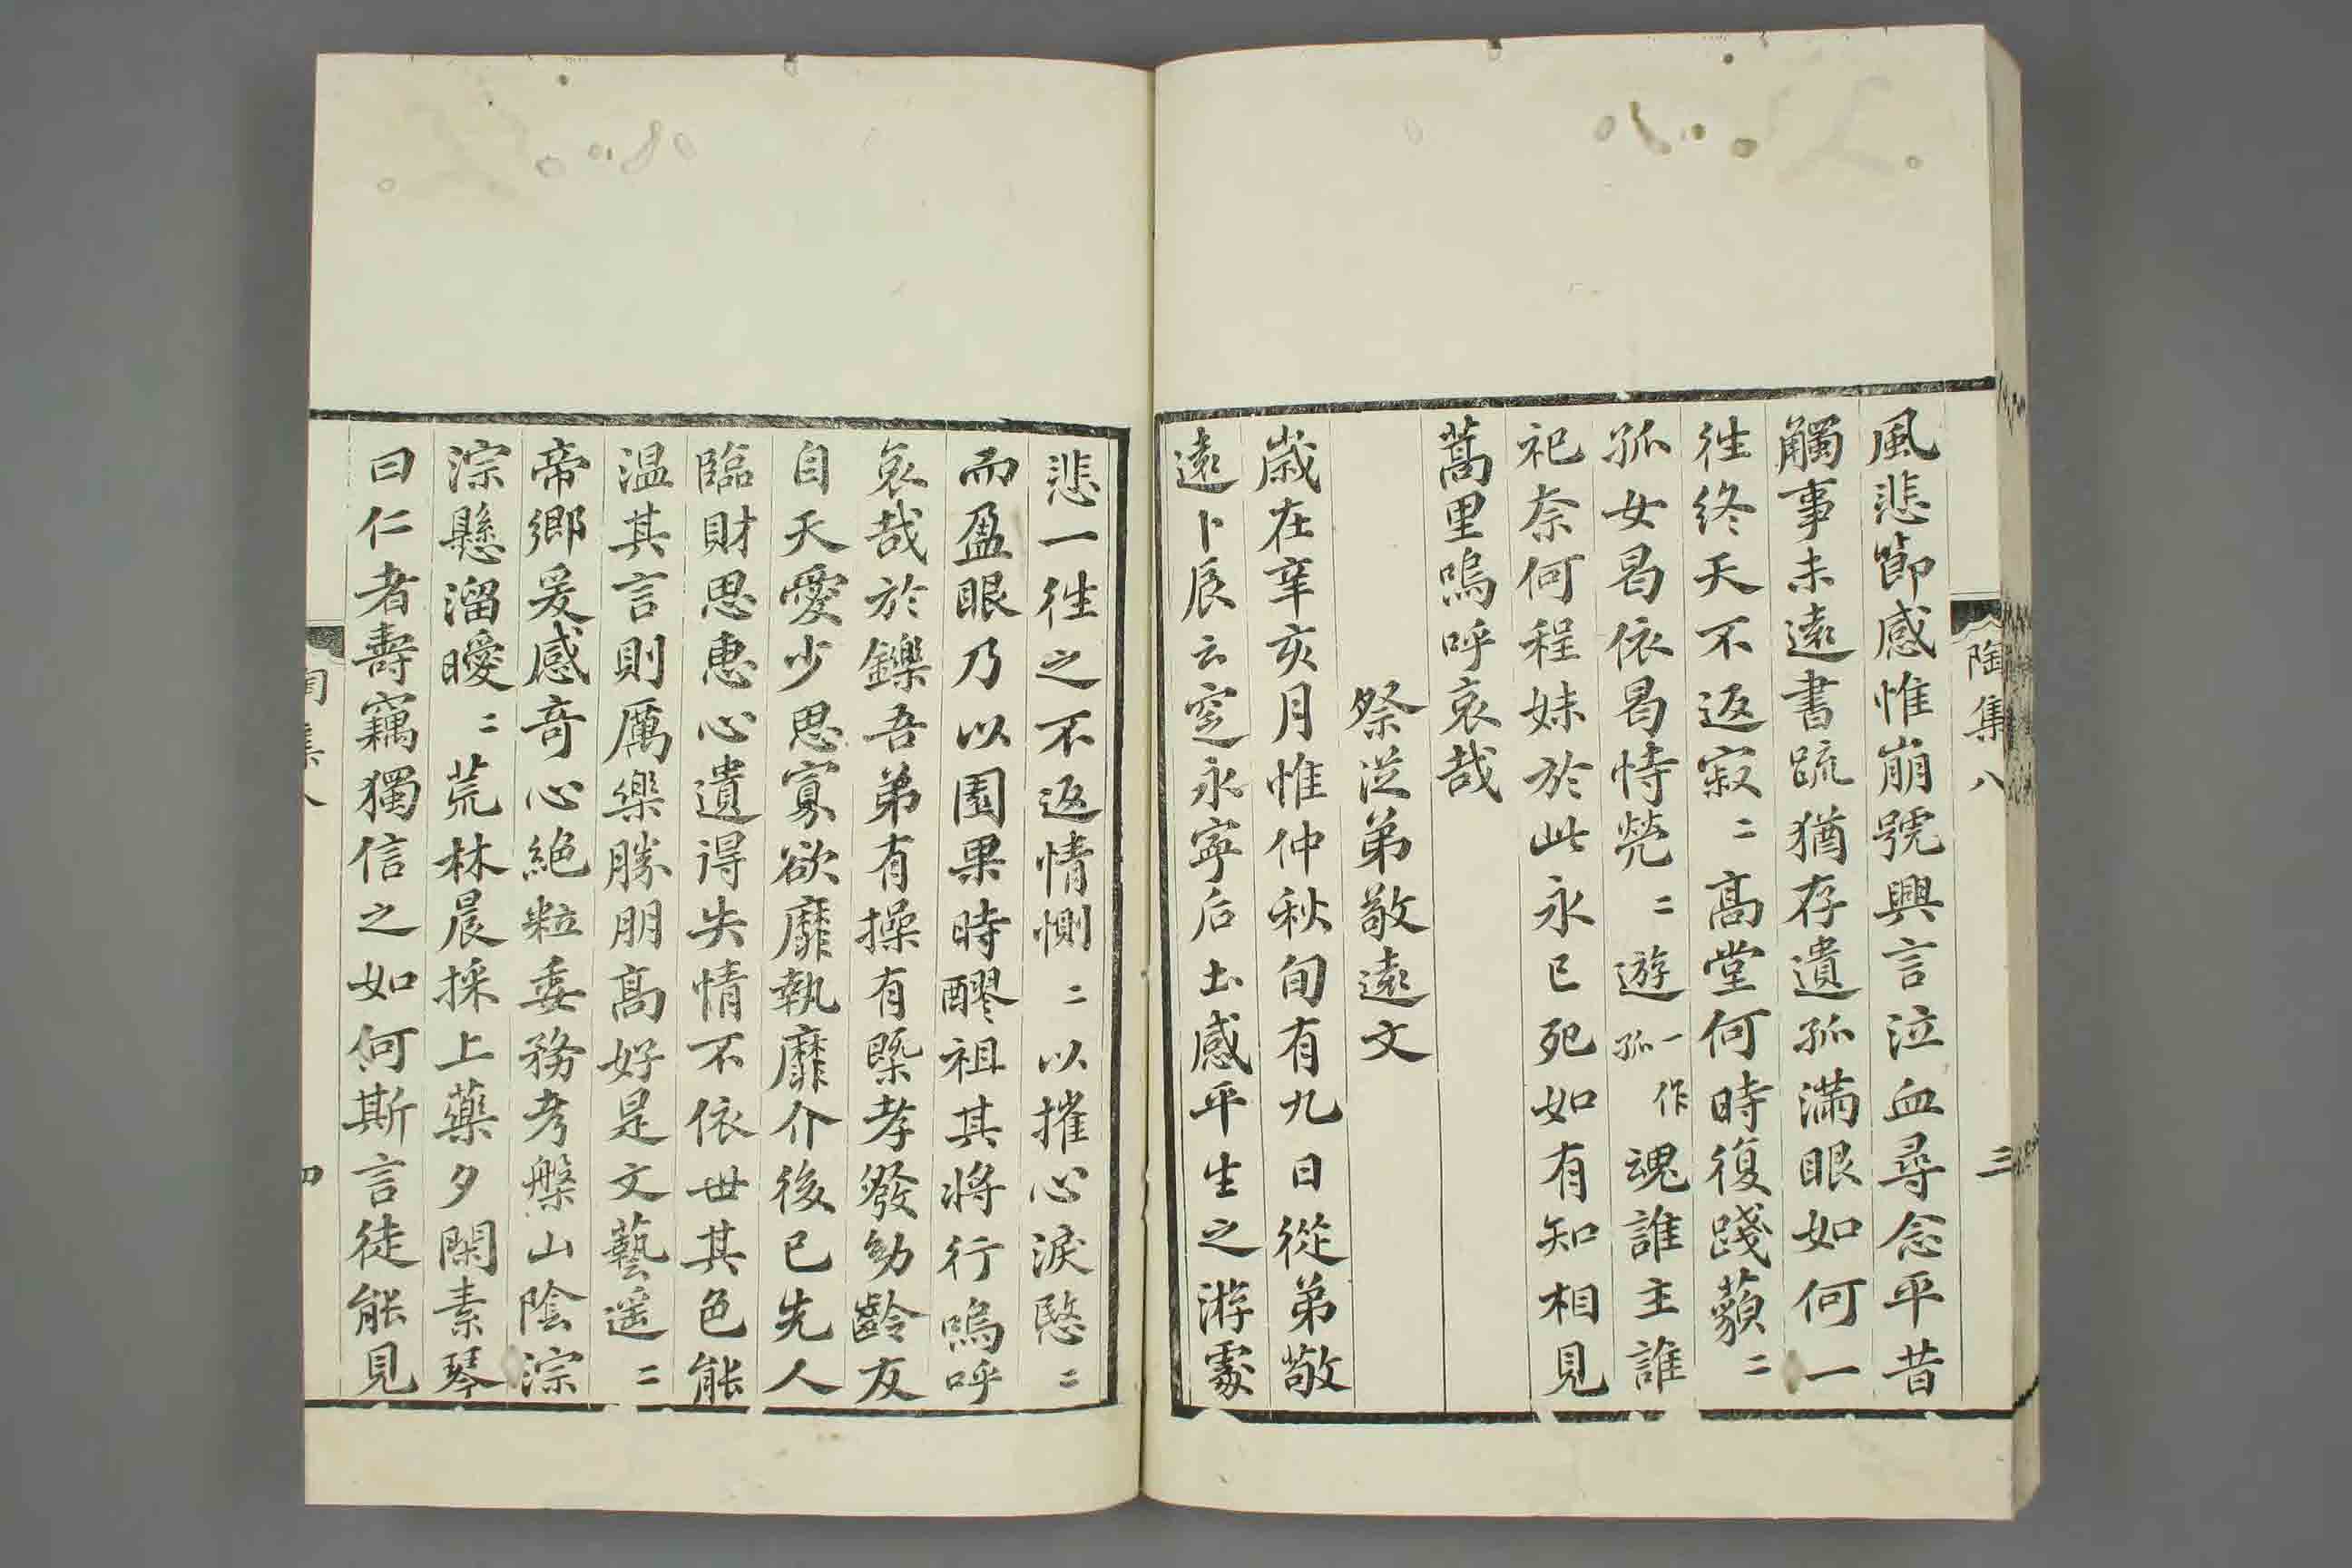 陶集八 三
風悲節感惟崩號興言泣血尋念平昔
觸事未遠書疏猶存遺孤滿眼如何一
往終天不返寂〻高堂何時復踐藐〻
孤女曷依曷恃煢〻遊一作孤魂誰主誰
祀奈何程妹於此永已死如有知相見
蒿里嗚呼哀哉
祭從弟敬遠文
歲在辛亥月惟仲秋旬有九日從弟敬
遠卜辰云窆永寧后土感平生之游處
悲一往之不返情惻〻以摧心淚愍〻
而盈眼乃以園果時醪祖其將行嗚呼
哀哉於鑠吾弟有操有槩孝發幼齡友
自天愛少思寡欲靡執靡介後己先人
臨財思惠心遺得失情不依世其色能
温其言則厲樂勝朋高好是文藝遥〻
帝鄉爰感奇心絕粒委務考槃山陰淙
淙懸溜曖〻荒林晨採上藥夕閑素琴
曰仁者壽竊獨信之如何斯言徒能見
陶集八 四